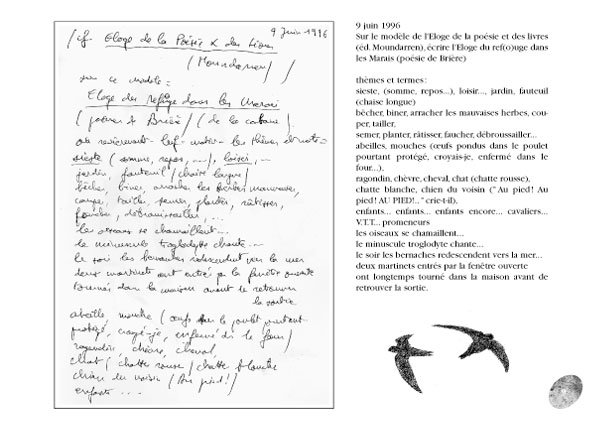 9 Juin 1996
/cf. Eloge de la Poésie & des Livres
(Moundarren) /
sur ce modèle =
Eloge du refuge dans les Marais
(poésie de Brière) / (de la cabane)
où reviennent les thèmes
sieste (somme, repos, ...), loisir, ...
jardin, fauteuil / chaise longue /
bêcher, biner, arracher les herbes mauvaises,
couper, tailler, semer, planter, râtisser,
faucher, débroussailler, ...
les oiseaux se chamaillent ...
le minuscule troglodyte chante ...
le soir les bernaches redescendent vers la mer
deux martinets ont entré par la fenêtre ouverte
tournés dans la maison avant de retrouver
la sortie
abeille, mouche (œufs dans le poulet pourtant
protégé, croyais-je, enfermé ds le four)
ragondin, chèvre, cheval,
chat (chatte rousse / chatte blanche
chien du voisin (Au pied !)
enfants ...
9 juin 1996
Sur le modèle de l'Eloge de la poésie et des livres
(éd. Moundarren), écrire l'Eloge du ref(o)uge dans
les Marais (poésie de Brière)
thèmes et termes :
sieste, (somme, repos...), loisir..., jardin, fauteuil
(chaise longue)
bêcher, biner, arracher les mauvaises herbes, cou-
per, tailler,
semer, planter, râtisser, faucher, débroussailler...
abeilles, mouches (œufs pondus dans le poulet
pourtant protégé, croyais-je, enfermé dans le
four...),
ragondin, chèvre, cheval, chat (chatte rousse),
chatte blanche, chien du voisin ("Au pied ! Au
pied ! AU PIED!.." crie-t-il),
enfants... enfants... enfants encore... cavaliers...
V.T.T... promeneurs
les oiseaux se chamaillent...
le minuscule troglodyte chante...
le soir les bernaches redescendent vers la mer...
deux martinets entrés par la fenêtre ouverte
ont longtemps tourné dans la maison avant de
retrouver la sortie.